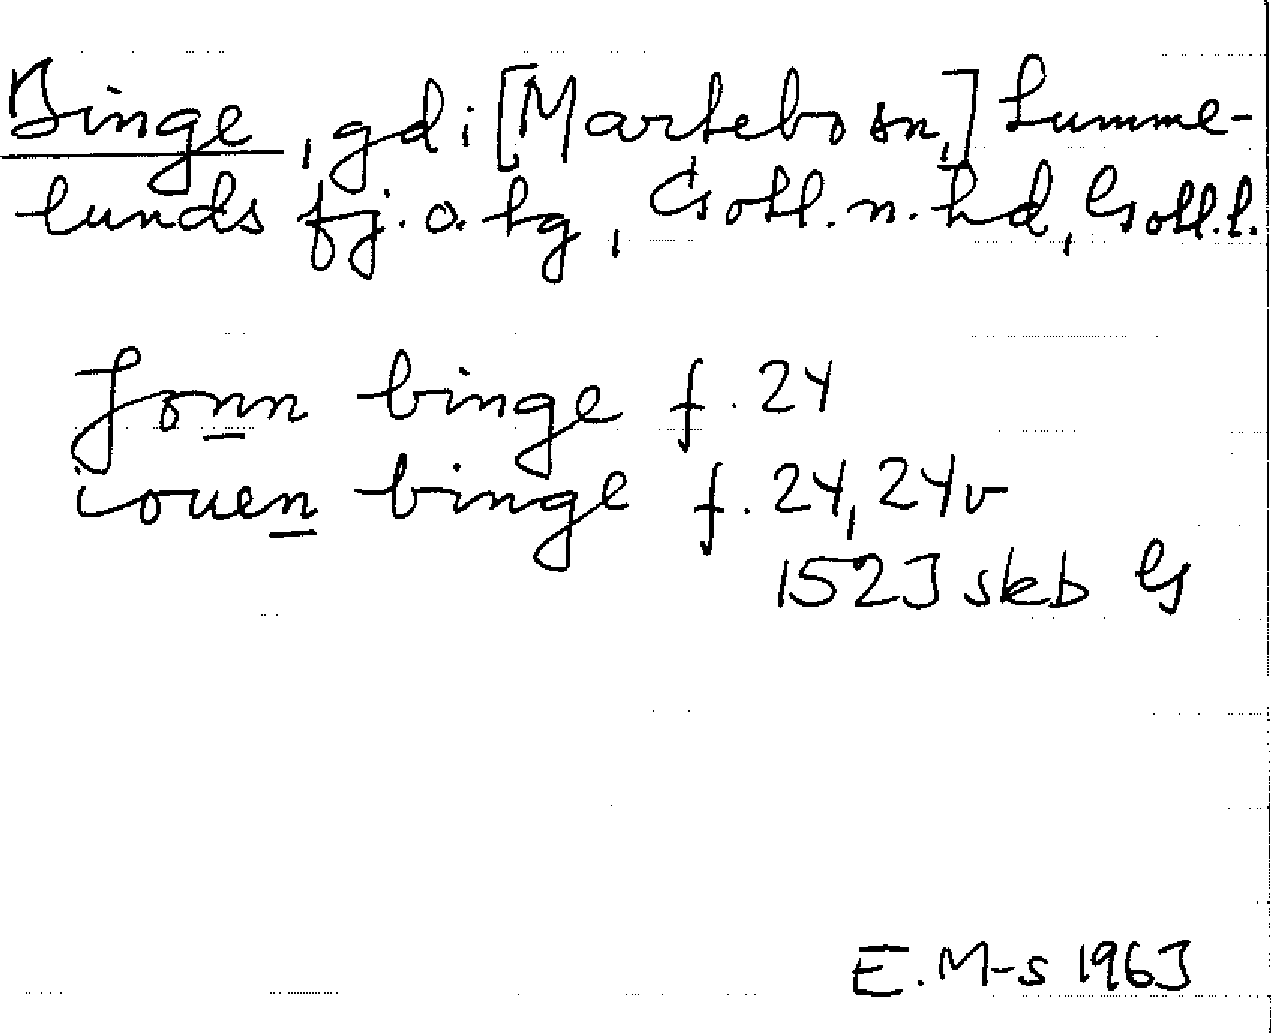 Binge, gd i [Martebo sn,] Lumme-
lunds fj. o. tg, Gotl. n. hd, Gotl. l.
Jonn binge f. 24
iouen binge f. 24, 24v
1523 skb G
E. M-s 1963